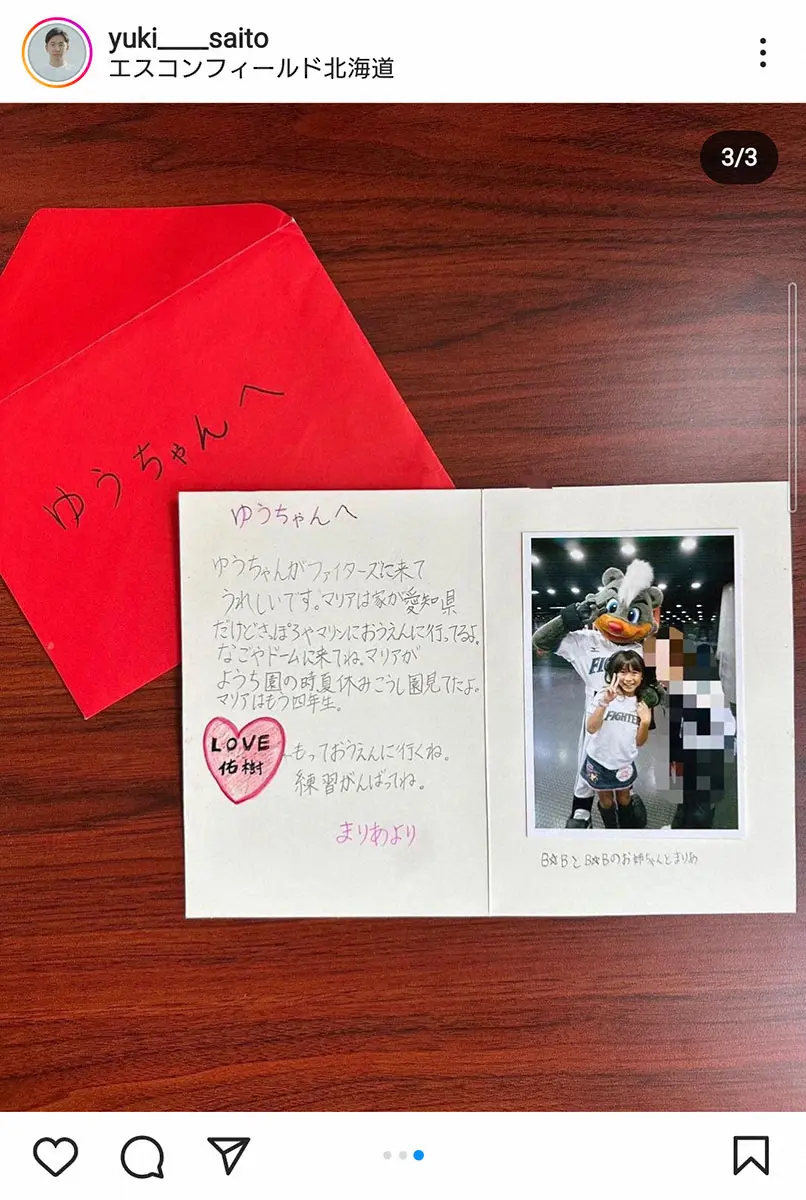 yuki____saito
エスコンフィールド北海道
3/3
ゆうちゃんへ
ゆうちゃんへ
ゆうちゃんがファイターズに来て
うれしいです。マリアは家が愛知県
だけどさっぽろやマリンにおうえんに行ってるよ。
なごやドームに来てね。マリアが
ようち園の時夏休みこうし園見てたよ。
マリアはもう四年生。
LOVE
佑樹
もっておうえんに行くね。
練習がんばってね。
まりあより
FIGHTERS
B☆BとB☆Bのお姉ちゃんとまりあ